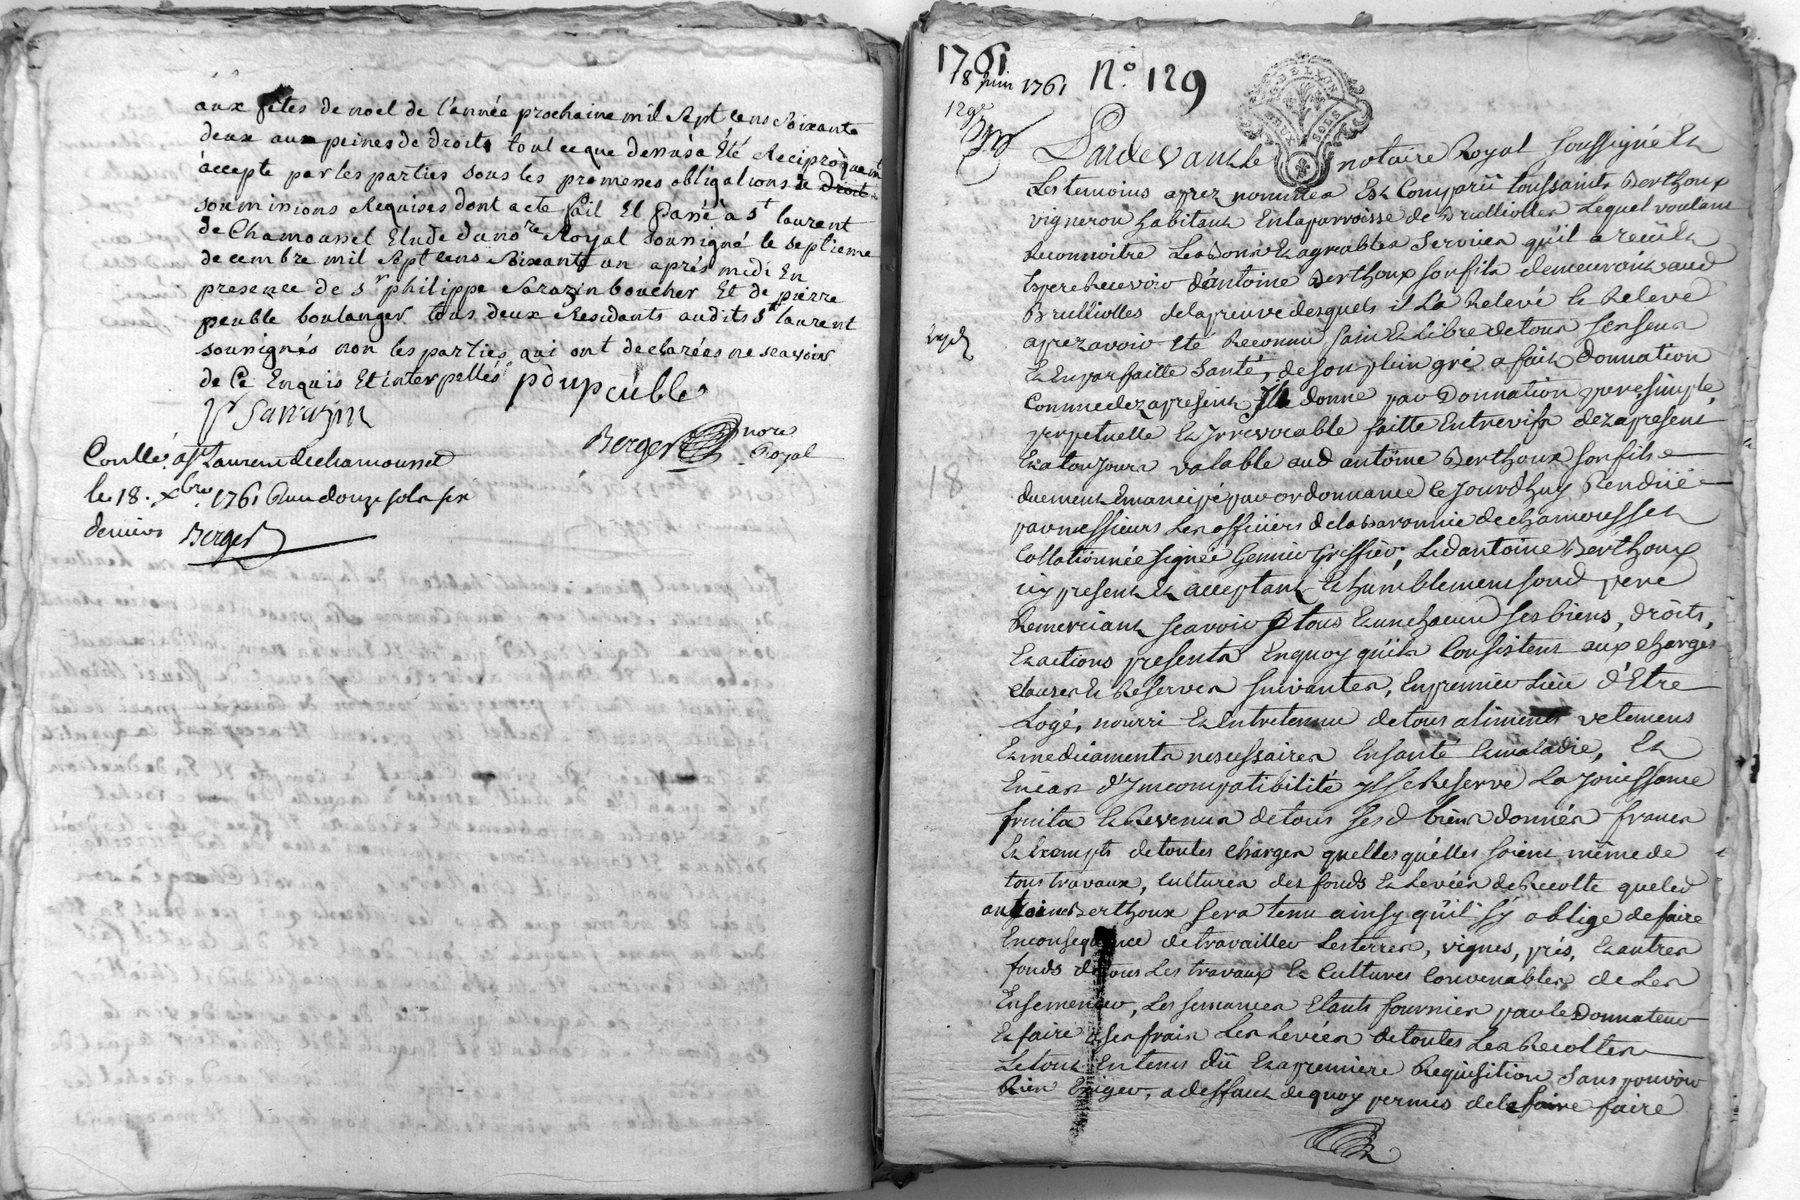 aux fêtes de noel de l'année prochaine mil Sept cens Soixante
deux aux peines de droits tout ce que dessus a Été Reciproquemt
accepte par les parties sous les promesses obligations de droit
soumissions Requises dont acte fait Et passé à St laurent
de Chamousset Etude du nore Royal soussigné le septieme
decembre mil Sept cens Soixante un aprés midi En
presence de Sr philippe Sarazin boucher Et de pierre
peuble boulanger tous deux Residants audit St laurent
soussignés non les parties qui ont declarées ne scavoir
de Ce Enquis Et interpellés pdupeuble
Sarrazin
Berger nore
Royal
Conllé a St Laurent de chamousset
le 18. xbre 1761 Reçu douze sols six
deniers Berger
1761
18 juin 1761 No. 129
129e
DE LYON
DEUX SOLS
Pardevant Le notaire Royal soussigné Et
Les temoins aprez nommés Est Comparü toussaints Berthoux
vigneron habitant En la parroisse de Brulliolles Lequel voulant
Reconnoitre Les bons Et agreables Services qu'il a reçûs Et
Espere Recevoir d'antoine Berthoux son fils demeurant aud
Brulliolles de la preuve desquels il L'a Relevé Et Releve
aprez avoir Eté Reconnu sain Et Libre de tous ses sens
Et En parfaitte santé, de son plein gré a fait donnation
Comme dez apresent Il donne par Donnation pure simple,
perpetuelle Et Irrévocable faitte Entre vifs dez apresent
Et a toujours valable aud antoine Berthoux son fils
duement Emancipé par ordonnance Ce jourdhuy Renduë
par messieurs Les officiers de la Baronnie de chamousset
Collationnée signée Greffier, Led antoine Berthoux
icy present Et acceptant Et humblement sond pere
Remerciant scavoir tous Et un chacun ses biens, droits,
Et actions presents En quoy qu'ils Consistent aux charges
clauses Et Reserves suivantes, En premier Lieu d'Etre
Logé, nourri Et Entretenu de tous aliments vetemens
Et medicaments necessaires En santé Et maladie, Et
En cas d'Imcompatibilité Il se Reserve La Jouissance
fruits Et Revenus de tous sesd biens donnés francs
Et Exempts de toutes charges quelles quélles soient même de
tous travaux, Cultures des fonds Et Levées de Recolte que led
antoine Berthoux sera tenu ainsy qu'il s'y oblige de faire
En consequence de travailler Les terres, vignes, prés, Et autres
fonds de tous Les travaux Et Cultures Convenables de Les
Ensemencer, Les semances Etants fournies par le Donnateur
Et faire a ses frais Les Levées de toutes Les Recoltes
Le tout En tems dû Et a premiere Requisition Sans pouvoir
Rien Exiger, a deffaut de quoy permis de le faire faire
18